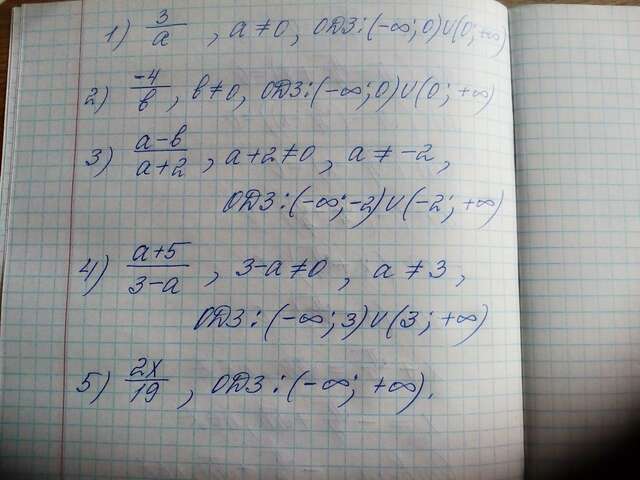 1) 3/a , a ≠ 0, ОДЗ: (-∞; 0) ∪ (0; +∞)
2) -4/в , в ≠ 0, ОДЗ: (-∞; 0) ∪ (0; +∞)
3) a-в/a+2 , a+2 ≠ 0, a ≠ -2,
ОДЗ: (-∞; -2) ∪ (-2; +∞)
4) a+5/3-a , 3-a ≠ 0, a ≠ 3,
ОДЗ: (-∞; 3) ∪ (3; +∞)
5) 2x/19 , ОДЗ: (-∞; +∞).